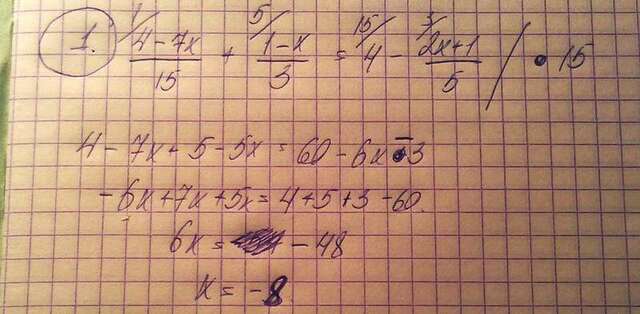 1. 1/ (4-7x)/15 + 5/ (1-x)/3 = 15/ 4 - 3/ (2x+1)/5 / • 15
4 - 7x + 5 - 5x = 60 - 6x - 3
-6x + 7x + 5x = 4 + 5 + 3 - 60.
6x = - 48
x = -8